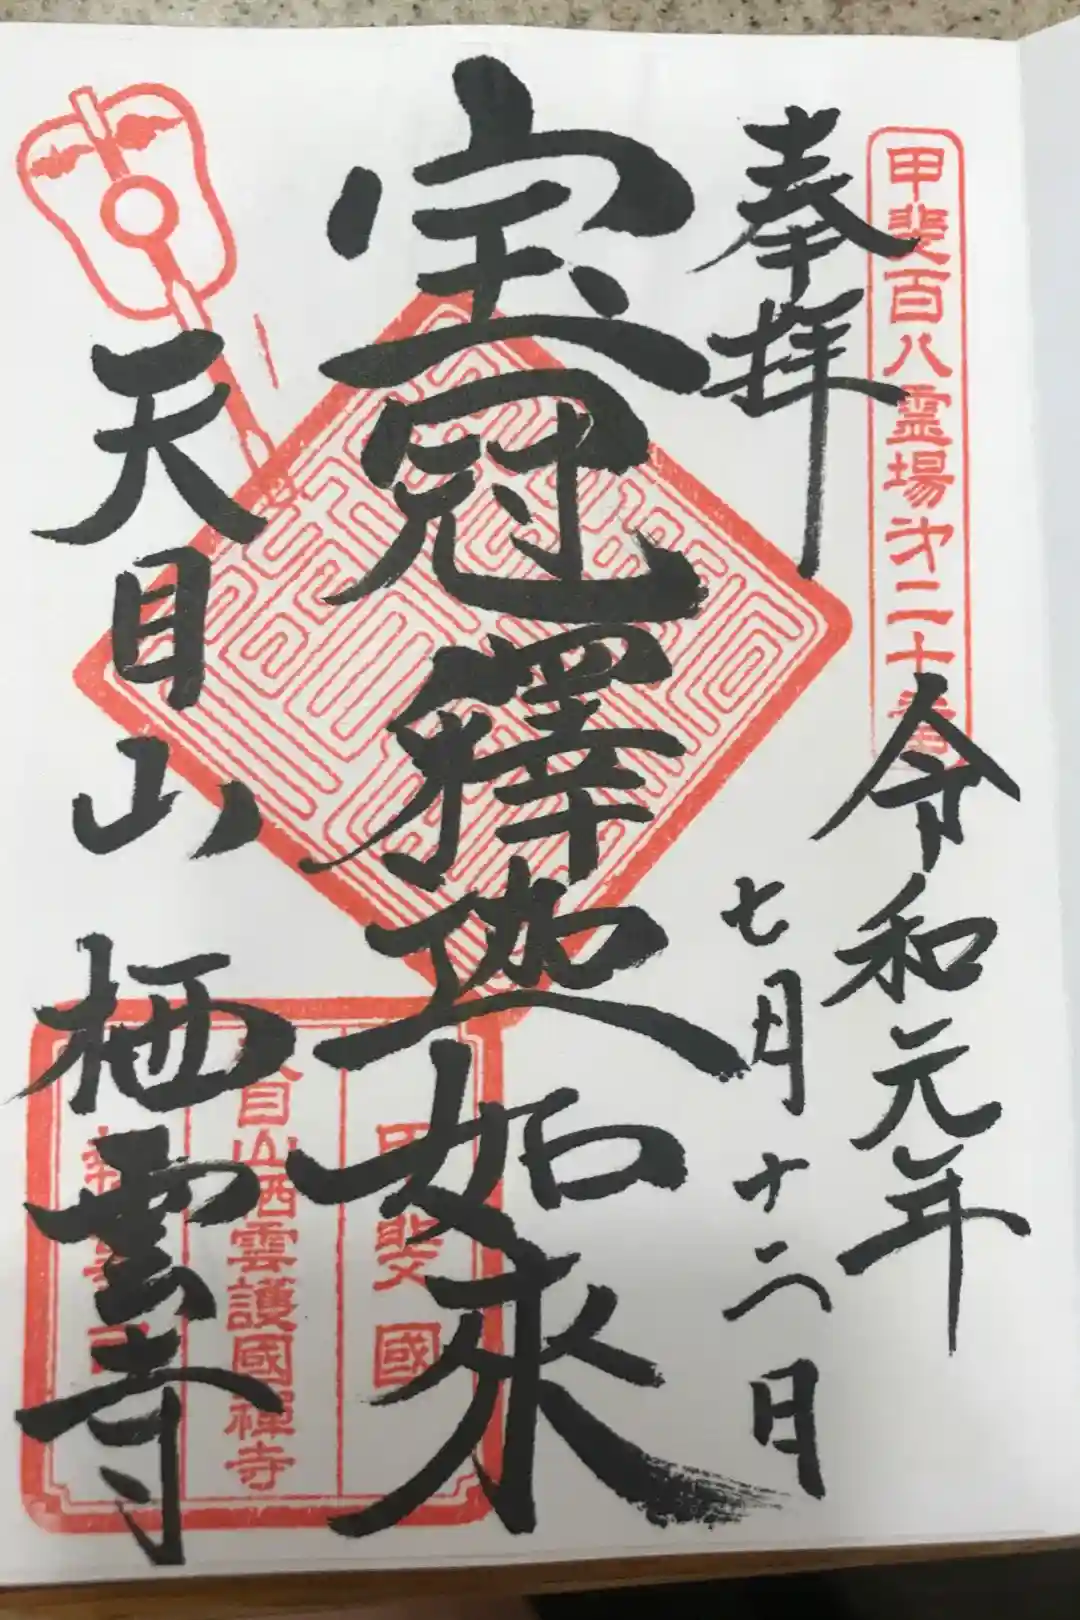 甲斐百八霊場第二十番
奉拝
令和元年
七月十二日
宝冠釋迦如来
天目山
栖雲寺
甲斐國
天目山栖雲護國禅寺